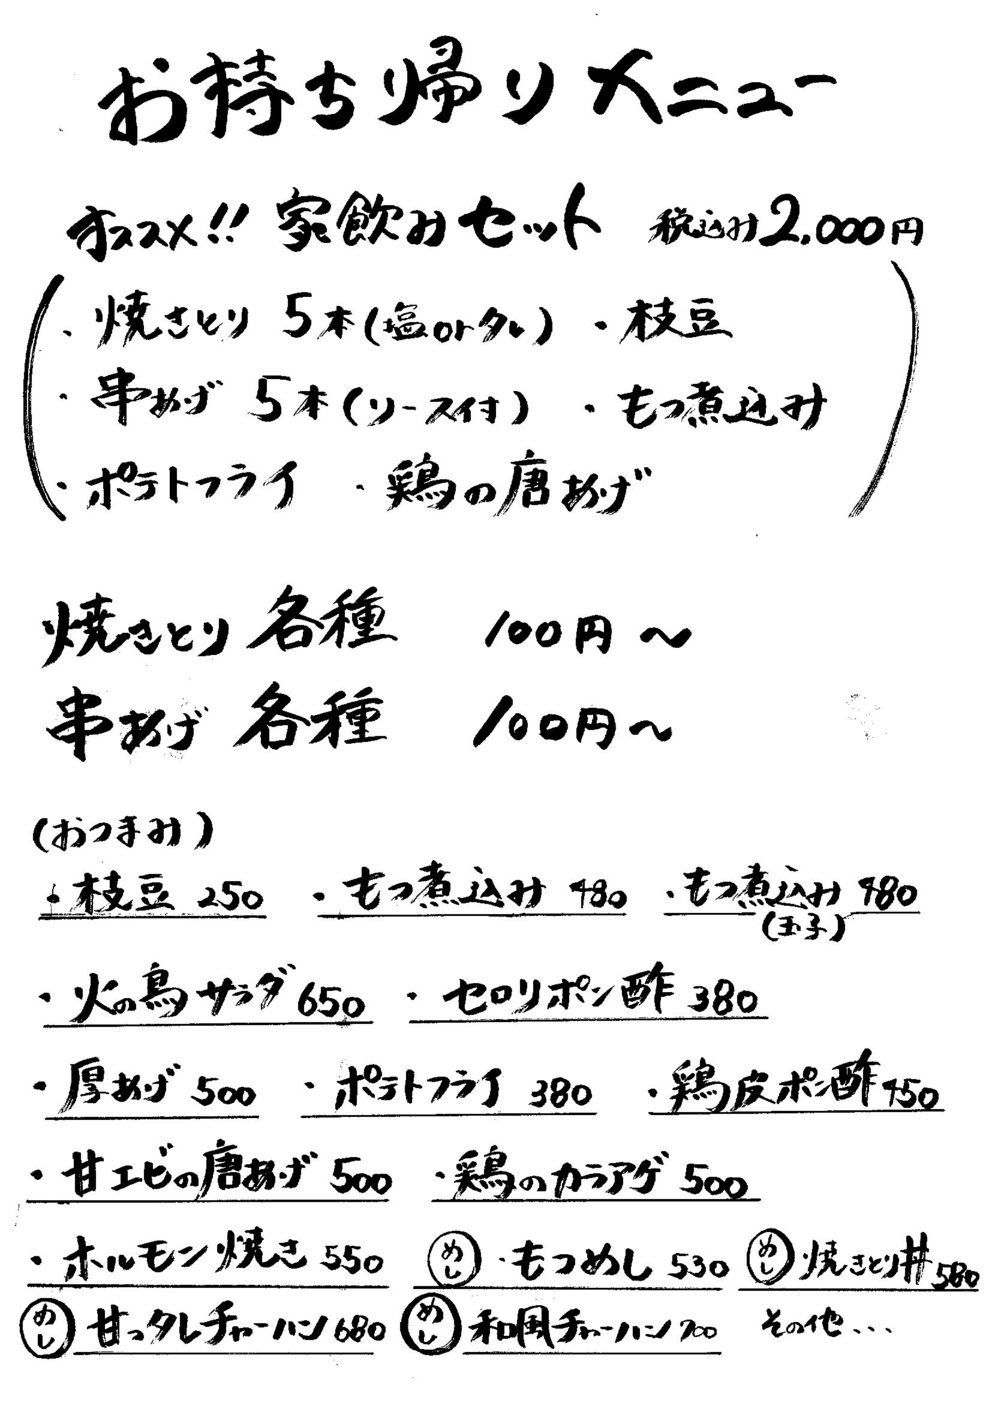 お持ち帰りメニュー
オススメ!! 家飲みセット 税込み2,000円
・焼きとり 5本(塩orタレ) ・枝豆
・串あげ 5本(ソース付) ・もつ煮込み
・ポテトフライ ・鶏の唐あげ
焼きとり 各種 100円〜
串あげ 各種 100円〜
(おつまみ)
・枝豆 250 ・もつ煮込み 480 ・もつ煮込み 480
(玉子)
・火の鳥サラダ 650 ・セロリポン酢 380
・厚あげ 500 ・ポテトフライ 380 ・鶏皮ポン酢 450
・甘エビの唐あげ 500 ・鶏のカラアゲ 500
・ホルモン焼き 550 めし ・もつめし 530 めし ・焼きとり丼 580
めし 甘っタレチャーハン 680 めし 和風チャーハン 700 その他...